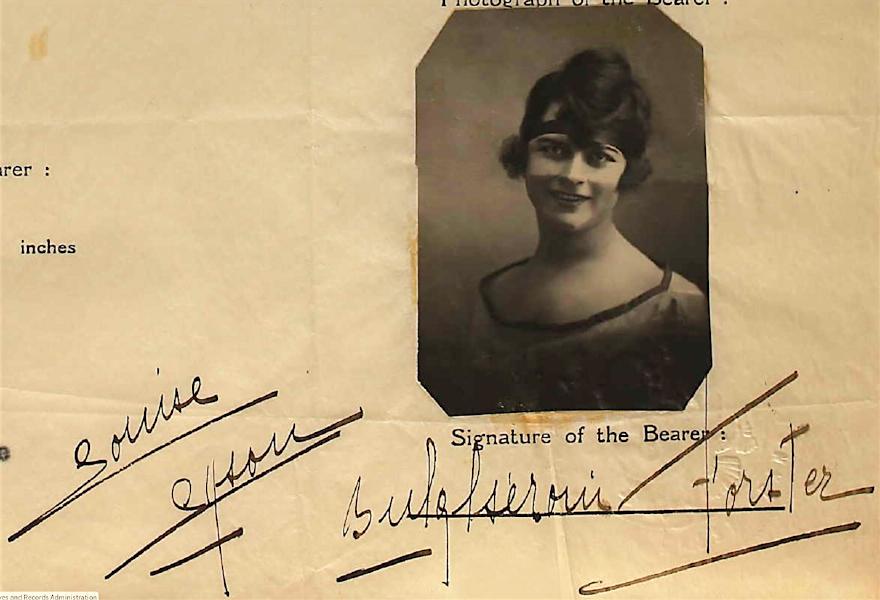 Photograph of the Bearer :
arer :
inches
Signature of the Bearer :
Louise
Forster
ves and Records Administration